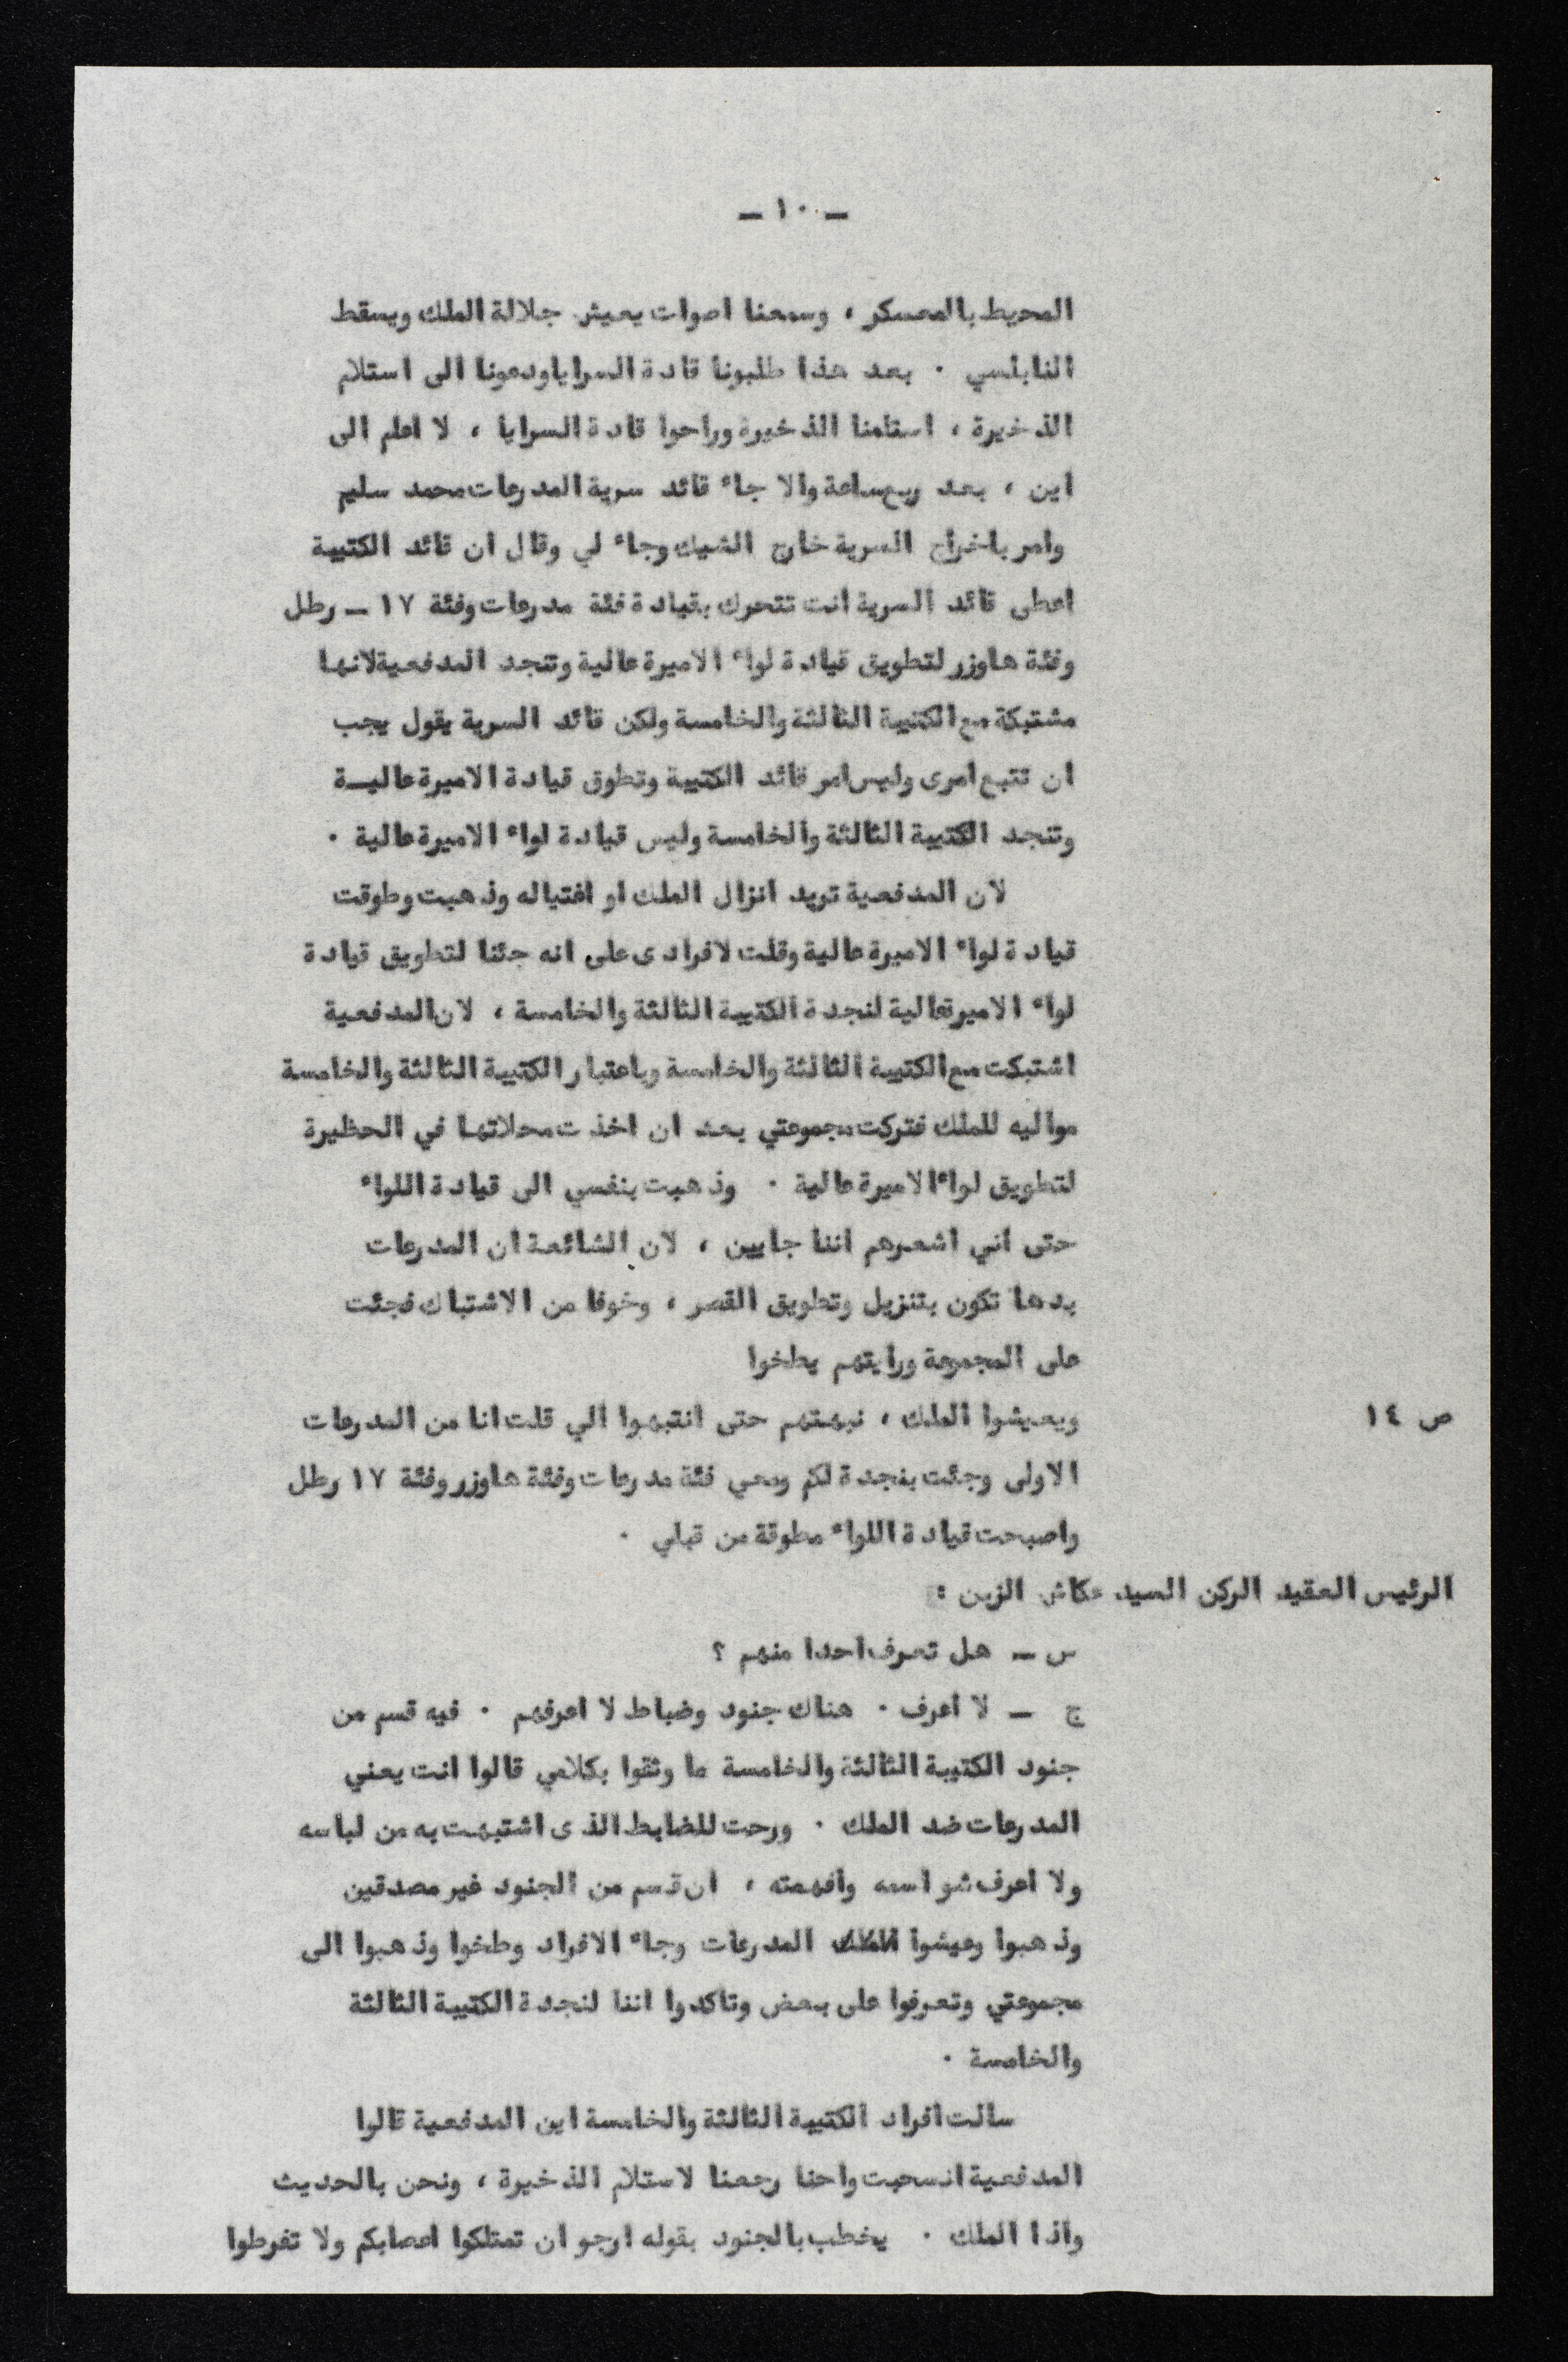 — ١٠ —
المحيط بالمعسكر ، وسمعنا اصوات يعيش جلالة الملك ويسقط
النابلسي . بعد هذا طلبونا قادة السرايا ودعونا الى استلام
الذخيرة ، استلمنا الذخيرة وراحوا قادة السرايا ، لا اعلم الى
اين ، بعد ربع ساعة والا جاء قائد سرية المدرعات محمد سليم
وامر باخراج السرية خارج الشيك وجاء لي وقال ان قائد الكتيبة
اعطى قائد السرية انت تتحرك بقيادة فئة مدرعات وفئة ١٧ — رطل
وفئة هاوزر لتطويق قيادة لواء الاميرة عالية وتنجد المدفعية لانها
مشتبكة مع الكتيبة الثالثة والخامسة ولكن قائد السرية يقول يجب
ان تتبع امرى وليس امر قائد الكتيبة وتطوق قيادة الاميرة عاليـــة
وتنجد الكتيبة الثالثة والخامسة وليس قيادة لواء الاميرة عالية .
لان المدفعية تريد انزال الملك او اغتياله وذهبت وطوقت
قيادة لواء الاميرة عالية وقلت لافرادى على انه جئنا لتطويق قيادة
لواء الاميرة عالية لنجدة الكتيبة الثالثة والخامسة ، لان المدفعية
اشتبكت مع الكتيبة الثالثة والخامسة وباعتبار الكتيبة الثالثة والخامسة
مواليه للملك فتركت مجموعتي بعد ان اخذت محلاتها في الحظيرة
لتطويق لواء الاميرة عالية . وذهبت بنفسي الى قيادة اللواء
حتى اني اشعرهم اننا جايين ، لان الشائعة ان المدرعات
بدها تكون بتنزيل وتطويق القصر ، وخوفا من الاشتباك فجئت
على المجموعة ورايتهم يطخوا
ص ١٤ ويعيشوا الملك ، نبهتهم حتى انتبهوا الي قلت انا من المدرعات
الاولى وجئت بنجدة لكم ومعي فئة مدرعات وفئة هاوزر وفئة ١٧ رطل
واصبحت قيادة اللواء مطوقة من قبلي .
الرئيس العقيد الركن السيد عكاش الزبن :
س — هل تعرف احدا منهم ؟
ج — لا اعرف . هناك جنود وضباط لا اعرفهم . فيه قسم من
جنود الكتيبة الثالثة والخامسة ما وثقوا بكلامي قالوا انت يعني
المدرعات ضد الملك . ورحت للضابط الذى اشتبهت به من لباسه
ولا اعرف شو اسمه وافهمته ، ان قسم من الجنود غير مصدقين
وذهبوا وعيشوا الملك المدرعات وجاء الافراد وطخوا وذهبوا الى
مجموعتي وتعرفوا على بعض وتاكدوا اننا لنجدة الكتيبة الثالثة
والخامسة .
سالت افراد الكتيبة الثالثة والخامسة اين المدفعية قالوا
المدفعية انسحبت واحنا رجعنا لاستلام الذخيرة ، ونحن بالحديث
واذا الملك . يخطب بالجنود بقوله ارجو ان تمتلكوا اعصابكم ولا تفرطوا